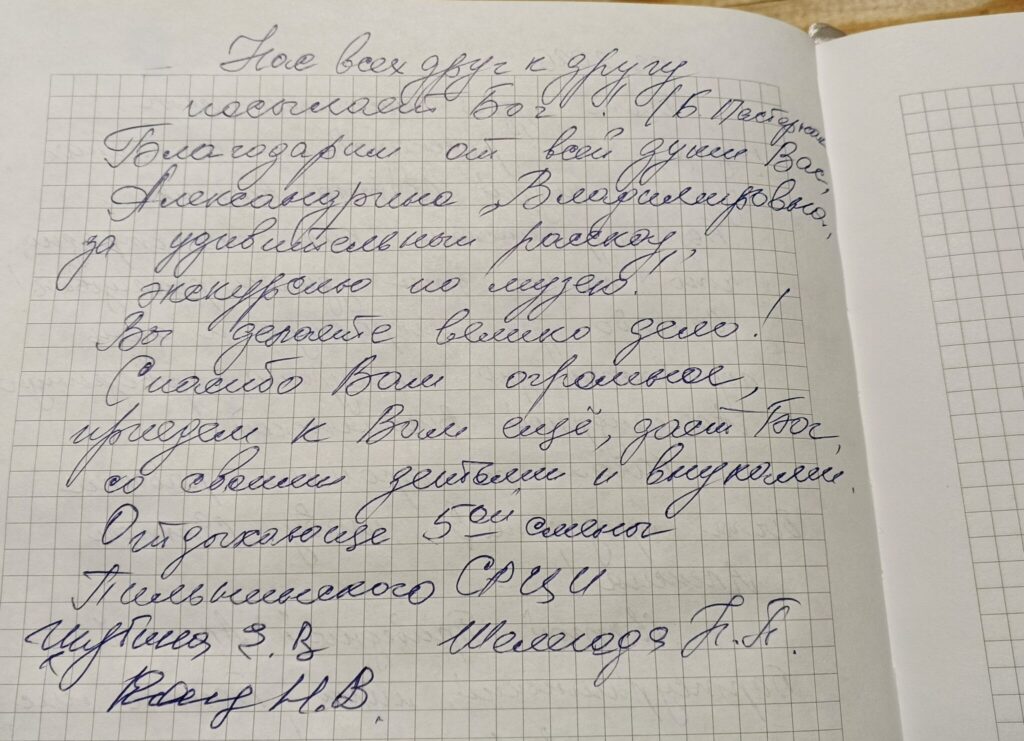 Нас всех друг к другу
посылает Бог!! (Б. Пастернак
Благодарим от всей души Вас,
Александрина Владимировна,
за удивительный рассказ,
экскурсию по музею!
Вы делаете велико дело!
Спасибо Вам огромное,
приедем к Вам ещё, даст Бог,
со своими детьми и внуками.
Отдыхающие 5ой смены
Пильнинского СРЦИ
Шубина З.В Шелегода П.П.
Н.В.